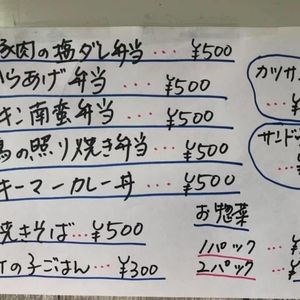 豚肉の塩ダレ弁当…¥500
からあげ弁当…¥500
キン南蛮弁当…¥500
鳥の照り焼き弁当…¥500
キーマーカレー丼…¥500
焼きそば…¥500
の子ごはん…¥300
カツサ
…¥
サンド
…¥
お惣菜
1パック…¥
2パック…¥